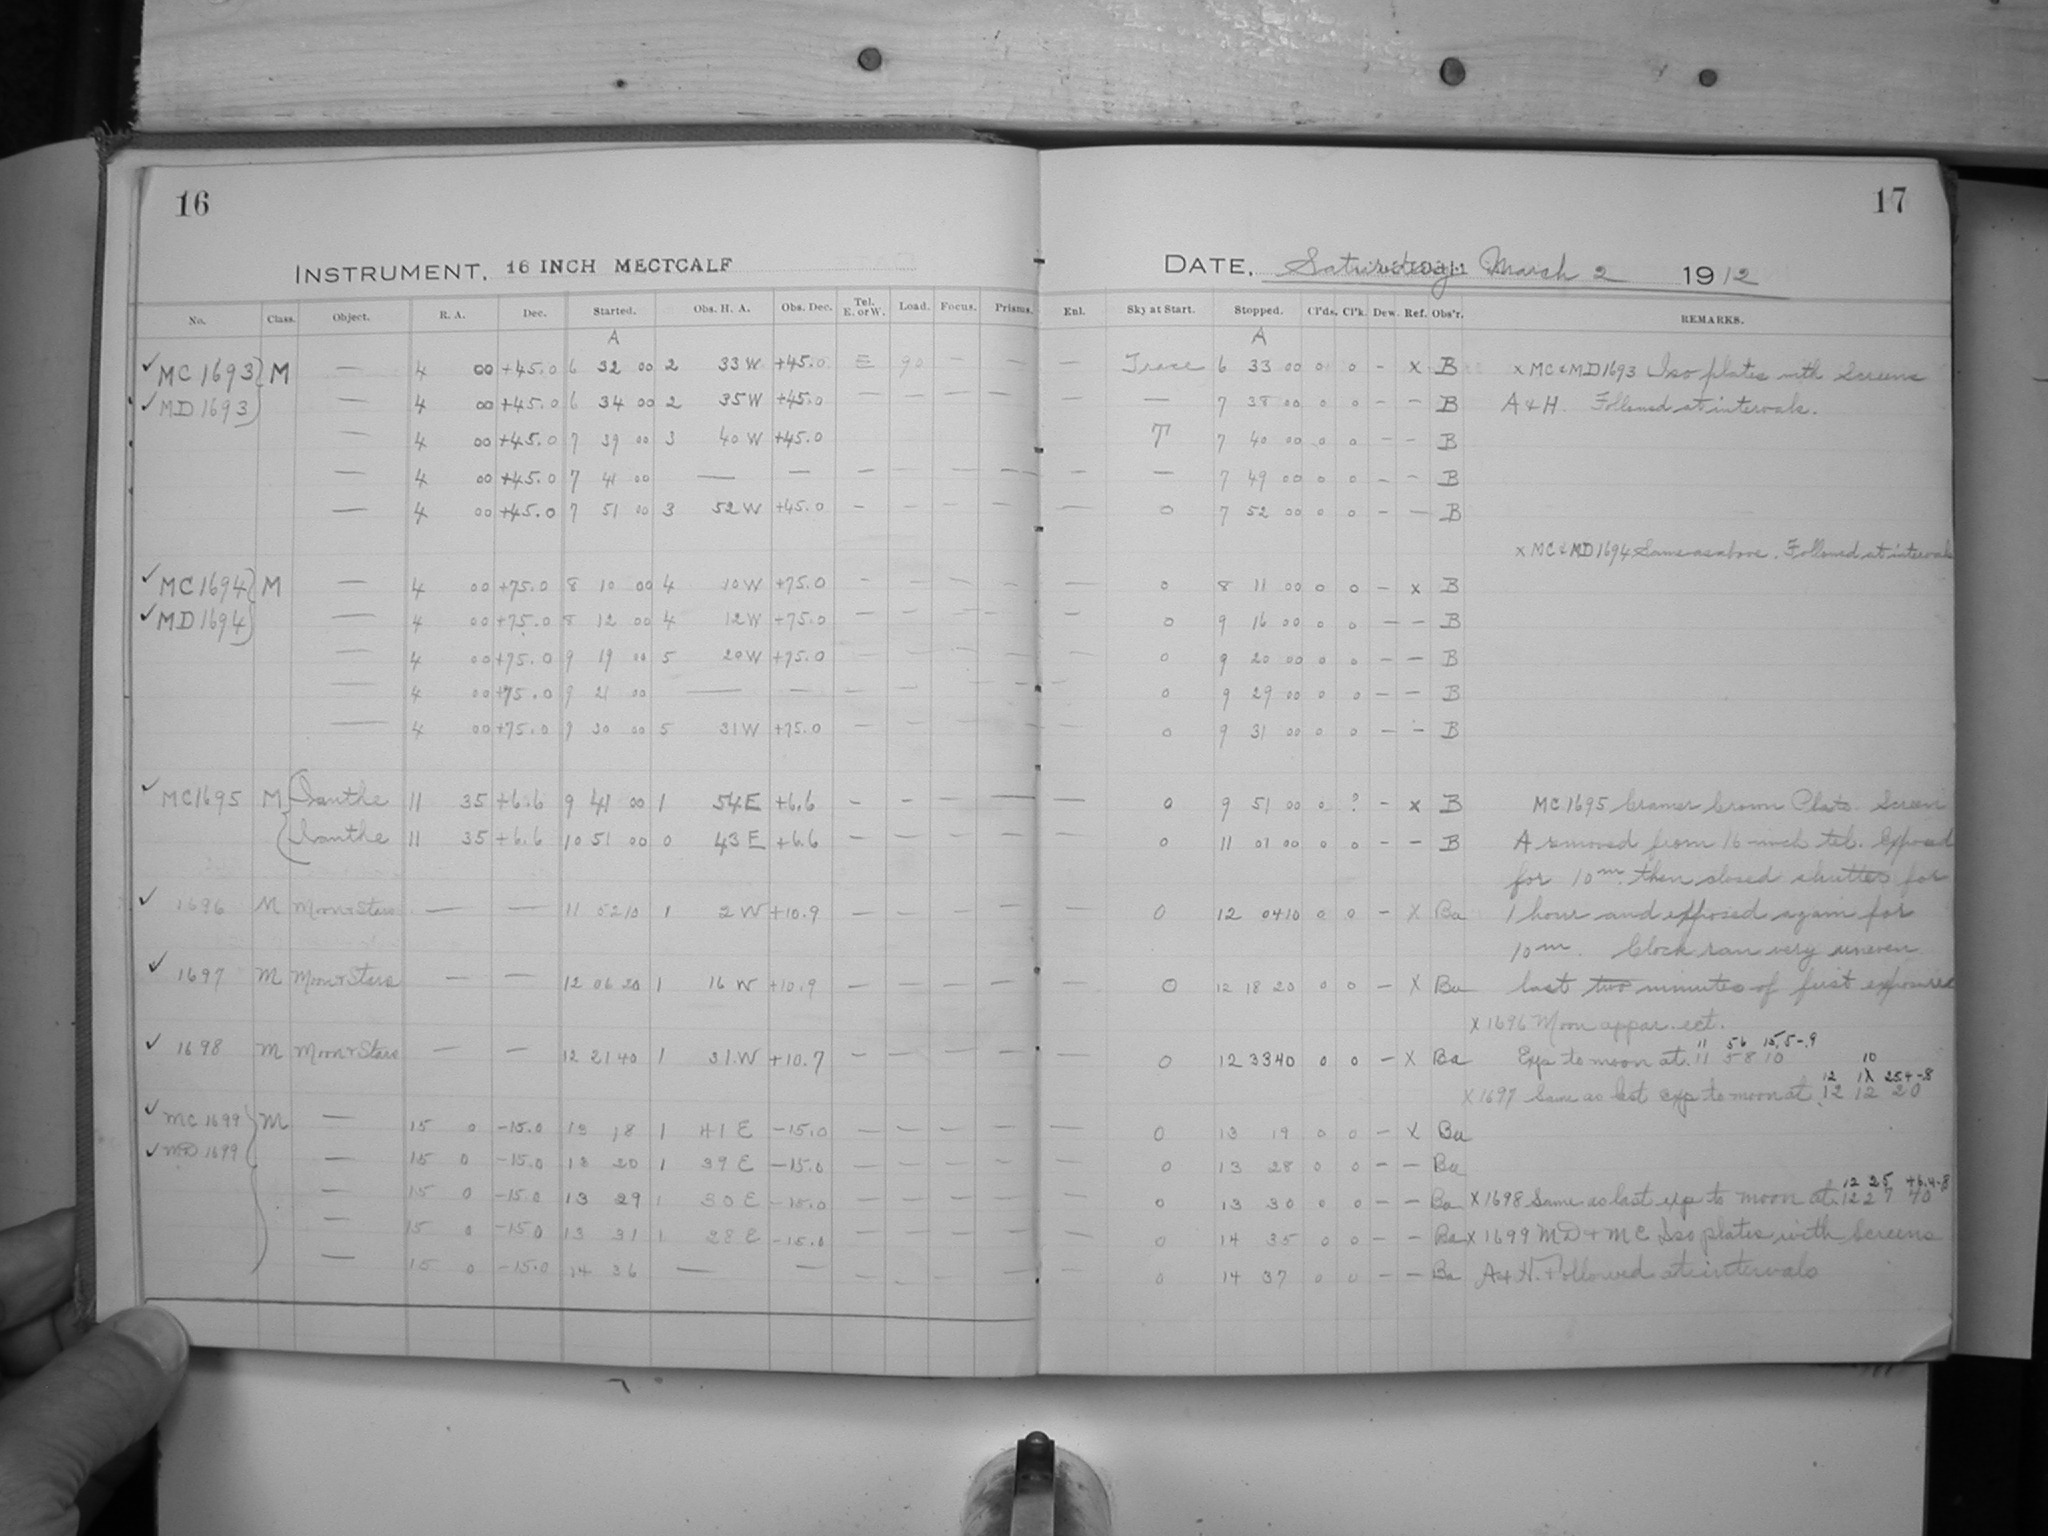 16
17
INSTRUMENT, 16 INCH MECTCALF
DATE, Saturday March 2 1912
No. Class. Object. R. A. Dec. Started. Obs. H. A. Obs. Dec. Tel. E. or W. Load. Focus. Prisms. Enl. Sky at Start. Stopped. Cl'ds. Cl'k. Dew. Ref. Obs'r. REMARKS.
A A
✓ MC 1693 M — 4 00 +45.0 6 32 00 2 33 W +45.0 E 90 — — — Trace 6 33 00 0 0 - x B x MC & MD 1693 Iso plates with Screens
✓ MD 1693 — 4 00 +45.0 6 34 00 2 35 W +45.0 — — — — — — 7 38 00 0 0 - - B A & H. Followed at intervals.
— 4 00 +45.0 7 39 00 3 40 W +45.0 T 7 40 00 0 0 - - B
— 4 00 +45.0 7 41 00 — — — — — — — — 7 49 00 0 0 - - B
— 4 00 +45.0 7 51 00 3 52 W +45.0 — — — — — 0 7 52 00 0 0 - - B
x MC & MD 1694 Same as above. Followed at intervals
✓ MC 1694 M — 4 00 +75.0 8 10 00 4 10 W +75.0 — — — — — 0 8 11 00 0 0 - x B
✓ MD 1694 — 4 00 +75.0 8 12 00 4 12 W +75.0 — — — — — 0 9 16 00 0 0 - - B
— 4 00 +75.0 9 19 00 5 20 W +75.0 — — — — 0 9 20 00 0 0 - - B
— 4 00 +75.0 9 21 00 — — — — — — 0 9 29 00 0 0 - - B
— 4 00 +75.0 9 30 00 5 31 W +75.0 — — — — — 0 9 31 00 0 0 - - B
✓ MC 1695 M Xanthe 11 35 +6.6 9 41 00 1 54 E +6.6 — — — — — 0 9 51 00 0 ? - x B MC 1695 Cramer Crown Plate. Screen
Xanthe 11 35 +6.6 10 51 00 0 43 E +6.6 — — — — — 0 11 01 00 0 0 - - B A removed from 16-inch tel. Exposed
for 10m. then closed shutter for
✓ 1696 M Moon & Stars — — 11 52 10 1 2 W +10.9 — — — — — 0 12 04 10 0 0 - X Ba 1 hour and exposed again for
10m. Clock ran very uneven
✓ 1697 M Moon & Stars — — 12 06 20 1 16 W +10.9 — — — — — 0 12 18 20 0 0 - X Ba last two minutes of first exposure
x 1696 Moon appar. ect.
11 56 15.5-.9
✓ 1698 M Moon & Stars — — 12 21 40 1 31 W +10.7 — — — — — 0 12 33 40 0 0 - X Ba Exp to moon at 11 58 10
12 10 25.4-.8
X 1697 Same as last exp to moon at 12 12 20
✓ MC 1699 M — 15 0 -15.0 13 18 1 41 E -15.0 — — — — — 0 13 19 0 0 - X Ba
✓ MD 1699 — 15 0 -15.0 13 20 1 39 E -15.0 — — — — — 0 13 28 0 0 - - Ba
12 25
— 15 0 -15.0 13 29 1 30 E -15.0 — — — — — 0 13 30 0 0 - - Ba X 1698 Same as last exp to moon at 12 27 40
— 15 0 -15.0 13 31 1 28 E -15.0 — — — — — 0 14 35 0 0 - - Ba X 1699 MD + MC Iso plates with Screens
— 15 0 -15.0 14 36 — — — — — — — 0 14 37 0 0 - - Ba A & H. Followed at intervals